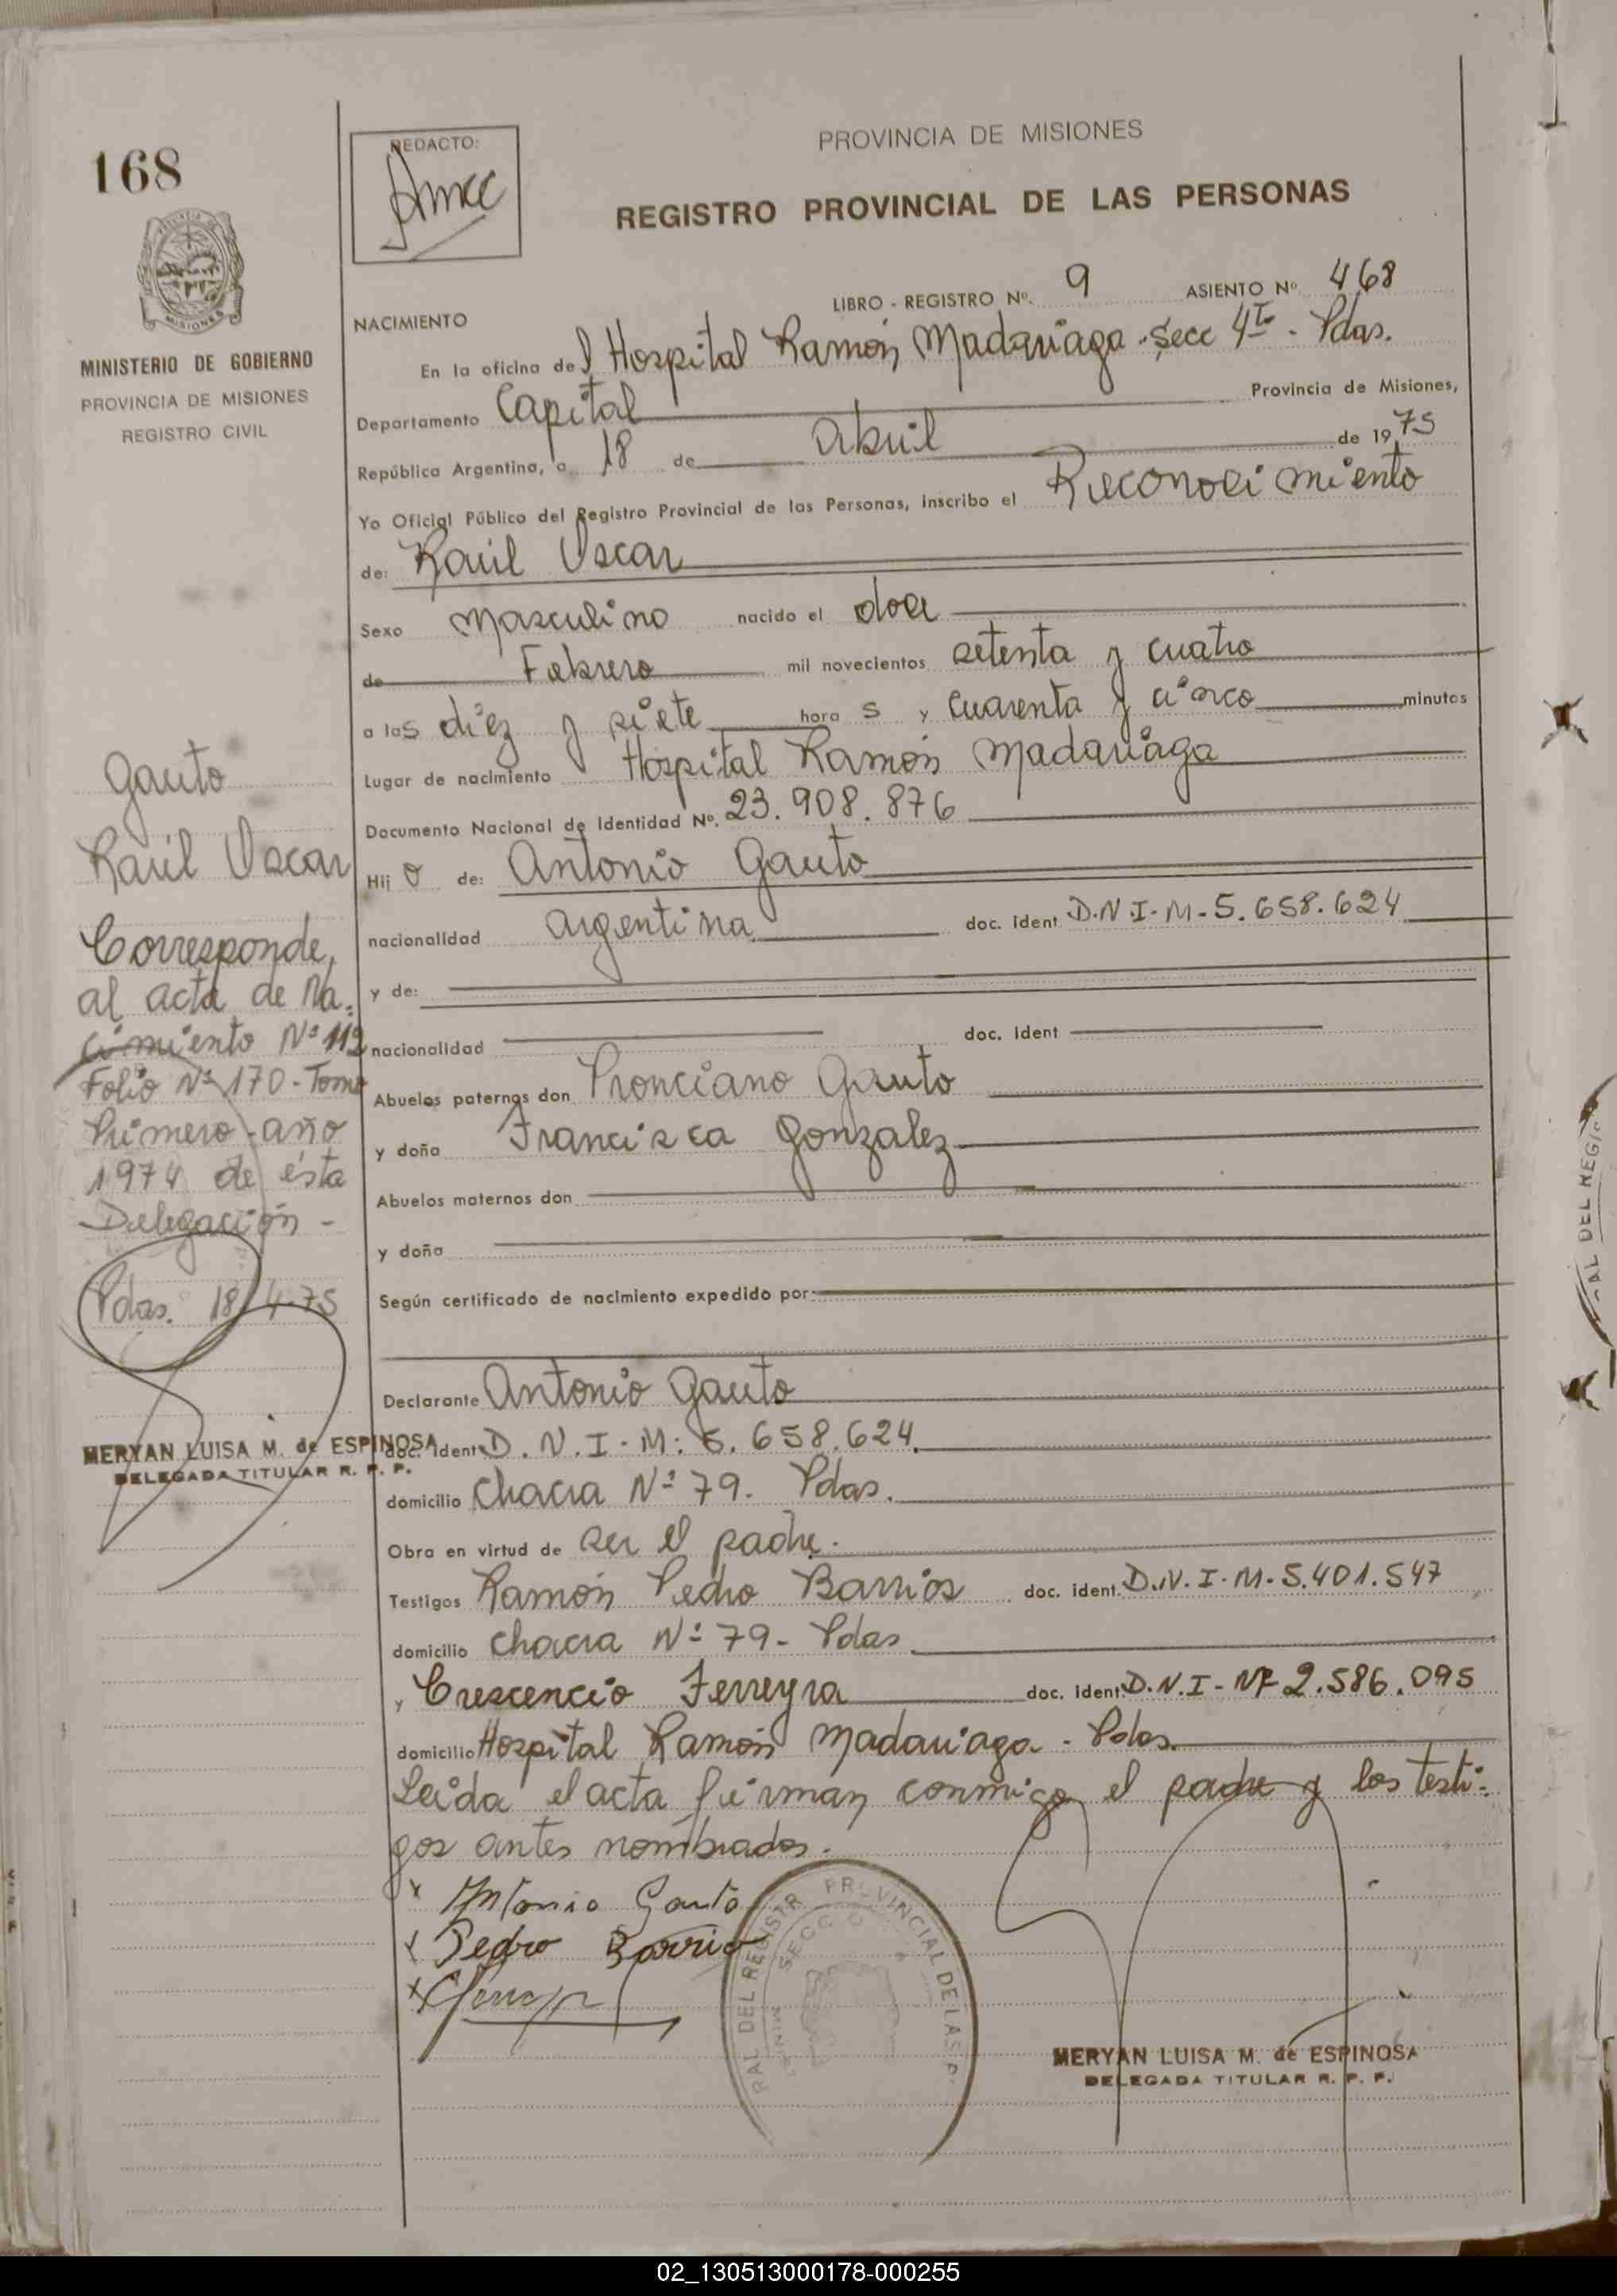 168
REDACTO:
PROVINCIA DE MISIONES
REGISTRO PROVINCIAL DE LAS PERSONAS
MISIONES
MINISTERIO DE GOBIERNO
PROVINCIA DE MISIONES
REGISTRO CIVIL
LIBRO - REGISTRO Nº. 9 ASIENTO Nº 468
NACIMIENTO
En la oficina del Hospital Ramón Madariaga. Secc 4ta - Pdas.
Departamento Capital Provincia de Misiones,
República Argentina, a 18 de Abril de 1975
Yo Oficial Público del Registro Provincial de las Personas, inscribo el Reconocimiento
de: Raúl Oscar
Sexo Masculino nacido el doce
de Febrero mil novecientos setenta y cuatro
a las diez y siete hora s y cuarenta y cinco minutos
Lugar de nacimiento Hospital Ramón Madariaga
Documento Nacional de Identidad Nº. 23.908.876
Hij o de: Antonio Gauto
nacionalidad argentina doc. ident D.N.I-M-5.658.624
y de:
nacionalidad doc. ident
Abuelos paternos don Pronciano Gauto
y doña Francisca Gonzalez
Abuelos maternos don
y doña
Según certificado de nacimiento expedido por:
Declarante Antonio Gauto
doc. ident D.N.I-M: 5.658.624.
domicilio Chacra Nº 79. Pdas.
Obra en virtud de ser el padre.
Testigos Ramón Pedro Barrios doc. ident. D.N.I-M-5.401.547
domicilio Chacra Nº 79- Pdas
y Crescencio Ferreyra doc. ident. D.N.I- Nº 2.586.095
domicilio Hospital Ramón Madariaga - Pdas.
Leída el acta firman conmigo el padre y los testi-
gos antes nombrados.
x Antonio Gauto
x Pedro Barrio
x
Gauto
Raúl Oscar
Corresponde,
al acta de Na-
cimiento Nº 112
Folio Nº 170-Tomo
Primero-año
1974 de ésta
Delegación -
Pdas. 18-4-75
MERYAN LUISA M. de ESPINOSA
DELEGADA TITULAR R. P. P.
RAL DEL REGISTR PROVINCIAL DE LAS P.
SECC
MERYAN LUISA M. de ESPINOSA
DELEGADA TITULAR R. P. P.
AL DEL REGI
02_130513000178-000255